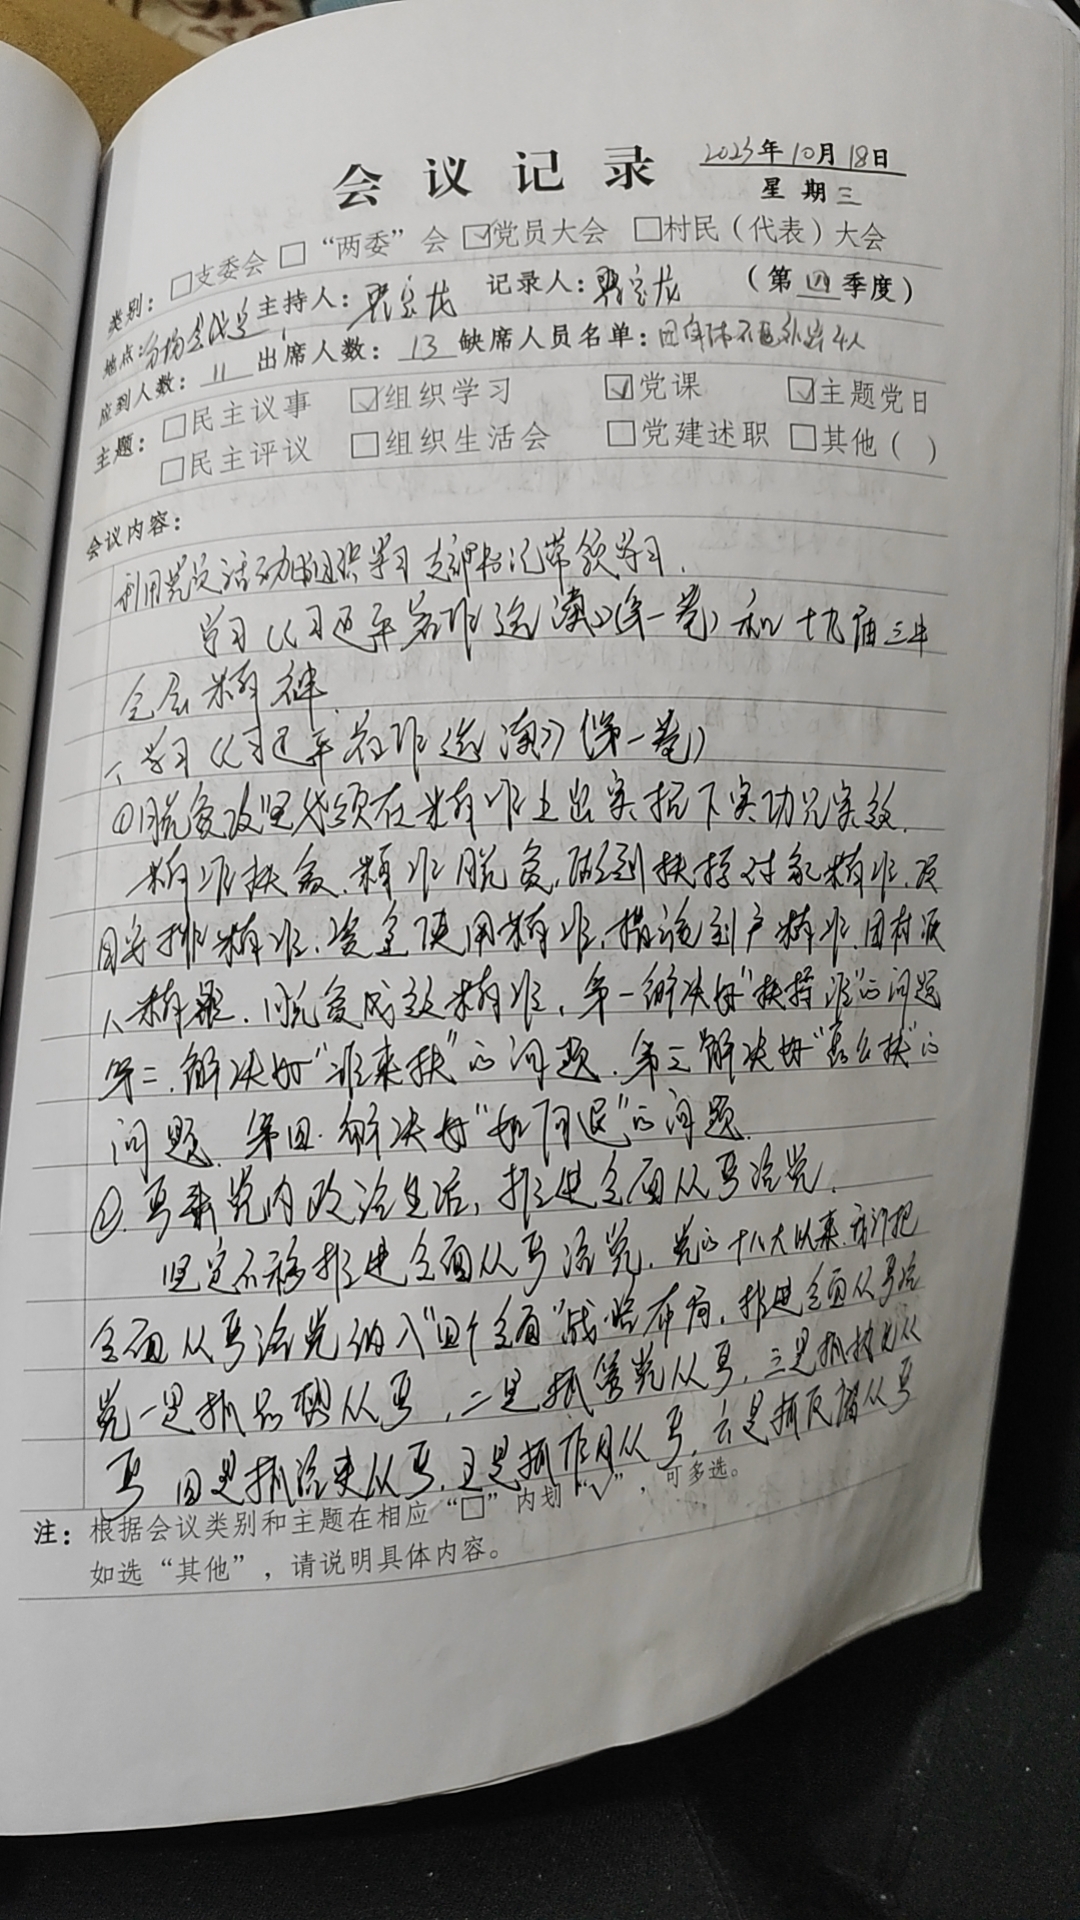 会议记录 2023年10月18日
星期三
类别：□支委会 □“两委”会 ☑党员大会 □村民（代表）大会
地点：分场会议室 主持人： 记录人： （第四季度）
应到人数：11 出席人数：13 缺席人员名单：因身体不适外出4人
主题：□民主议事 ☑组织学习 ☑党课 ☑主题党日
□民主评议 □组织生活会 □党建述职 □其他（ ）
会议内容：
利用党员活动日组织学习 支部书记带领学习.
学习《习近平著作选读》（第一卷）和十九届三中
全会精神.
一、学习《习近平著作选读》（第一卷）
①脱贫攻坚必须在精准上出实招下实功见实效.
精准扶贫、精准脱贫,做到扶持对象精准、项
目安排精准、资金使用精准、措施到户精准、因村派
人精准、脱贫成效精准，第一解决好“扶持谁”的问题
第二.解决好“谁来扶”的问题.第三解决好“怎么扶”的
问题.第四.解决好“如何退”的问题.
②.严肃党内政治生活，推进全面从严治党.
坚定不移推进全面从严治党.党的十八大以来.我们把
全面从严治党纳入“四个全面”战略布局，推进全面从严治
党一是抓思想从严，二是抓管党从严，三是抓执纪从
严 四是抓治吏从严.五是抓作风从严，六是抓反腐从严
注：根据会议类别和主题在相应“□”内划“√”，可多选。
如选“其他”，请说明具体内容。